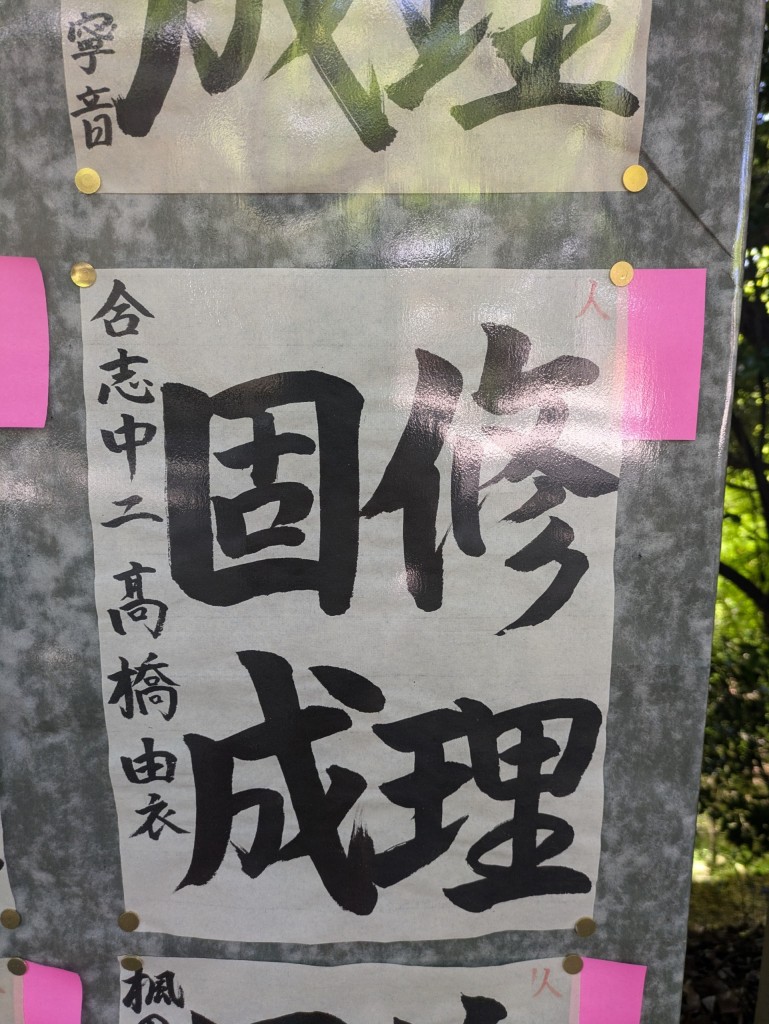 理
成
寧音
人
修理
固成
合志中二 髙橋由衣
楓